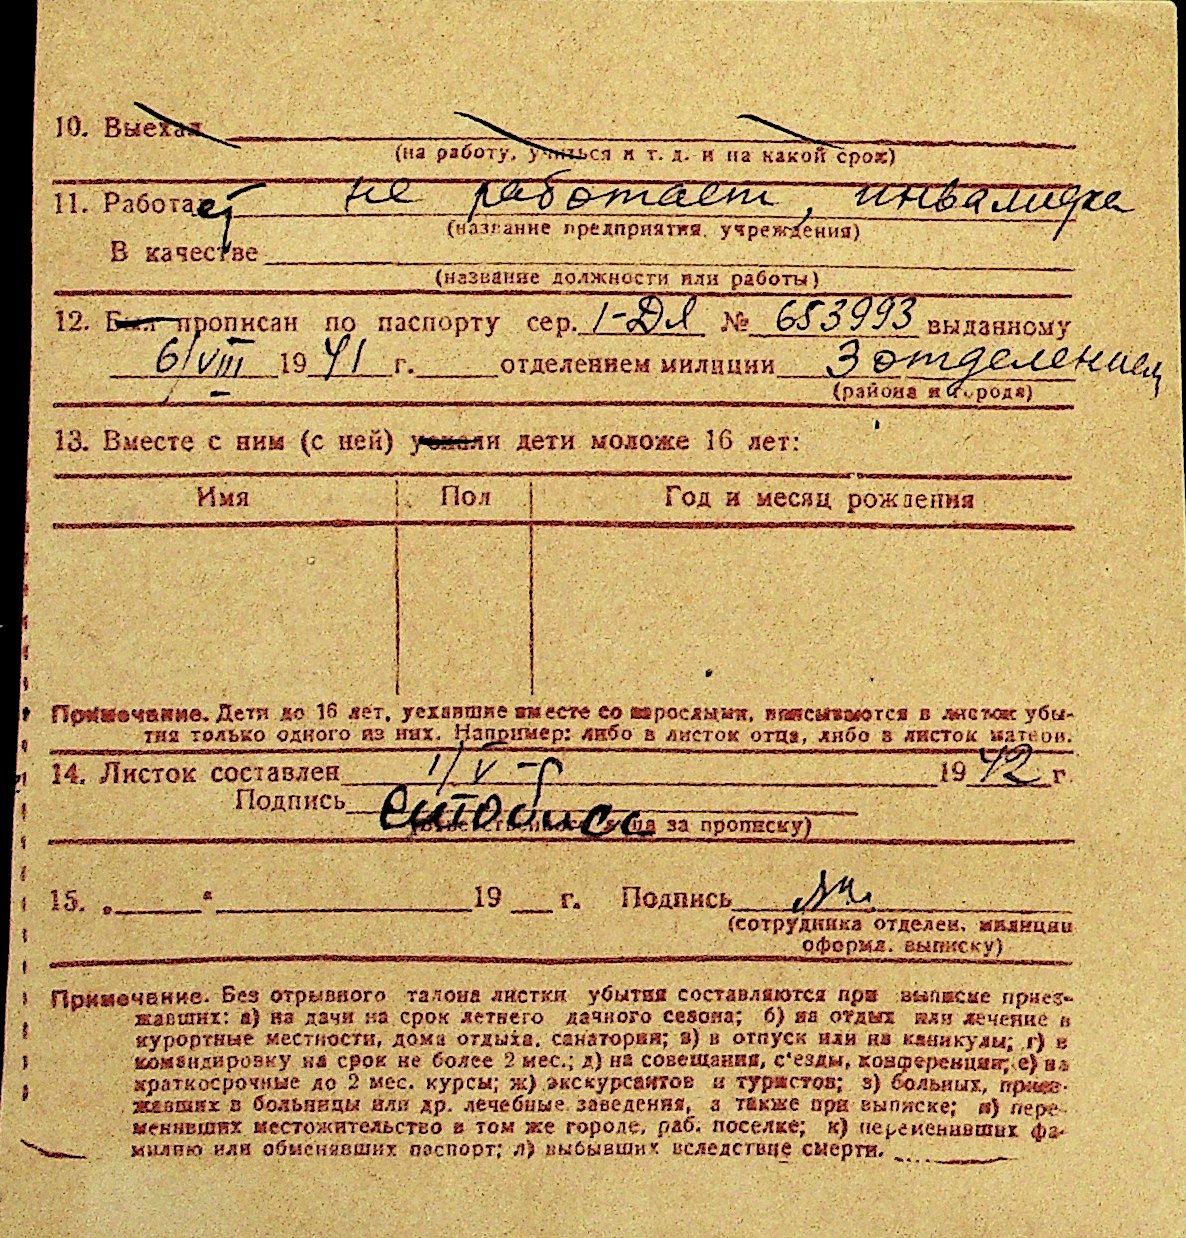 10. Выехал
(на работу, учиться и т. д. и на какой срок)
11. Работает не работает, инвалидка
(название предприятия, учреждения)
В качестве
(название должности или работы)
12. Был прописан по паспорту сер. 1-ДЯ № 653993 выданному
6/VIII 1941 г. отделением милиции 3 отделением
(района и города)
13. Вместе с ним (с ней) уехали дети моложе 16 лет:
Имя Пол Год и месяц рождения
Примечание. Дети до 16 лет, уехавшие вместе со взрослыми, вписываются в листок убы-
тия только одного из них. Например: либо в листок отца, либо в листок матери.
14. Листок составлен 1/V 1942 г
Подпись
(ответственного лица за прописку)
15. „ “ 19 г. Подпись
(сотрудника отделен. милиции
оформл. выписку)
Примечание. Без отрывного талона листки убытия составляются при выписке приез-
жавших: а) на дачи на срок летнего дачного сезона; б) на отдых или лечение в
курортные местности, дома отдыха, санатории; в) в отпуск или на каникулы; г) в
командировку на срок не более 2 мес.; д) на совещания, с'езды, конференции; е) на
краткосрочные до 2 мес. курсы; ж) экскурсантов и туристов; з) больных, приез-
жавших в больницы или др. лечебные заведения, а также при выписке; и) пере-
менивших местожительство в том же городе, раб. поселке; к) переменивших фа-
милию или обменявших паспорт; л) выбывших вследствие смерти.